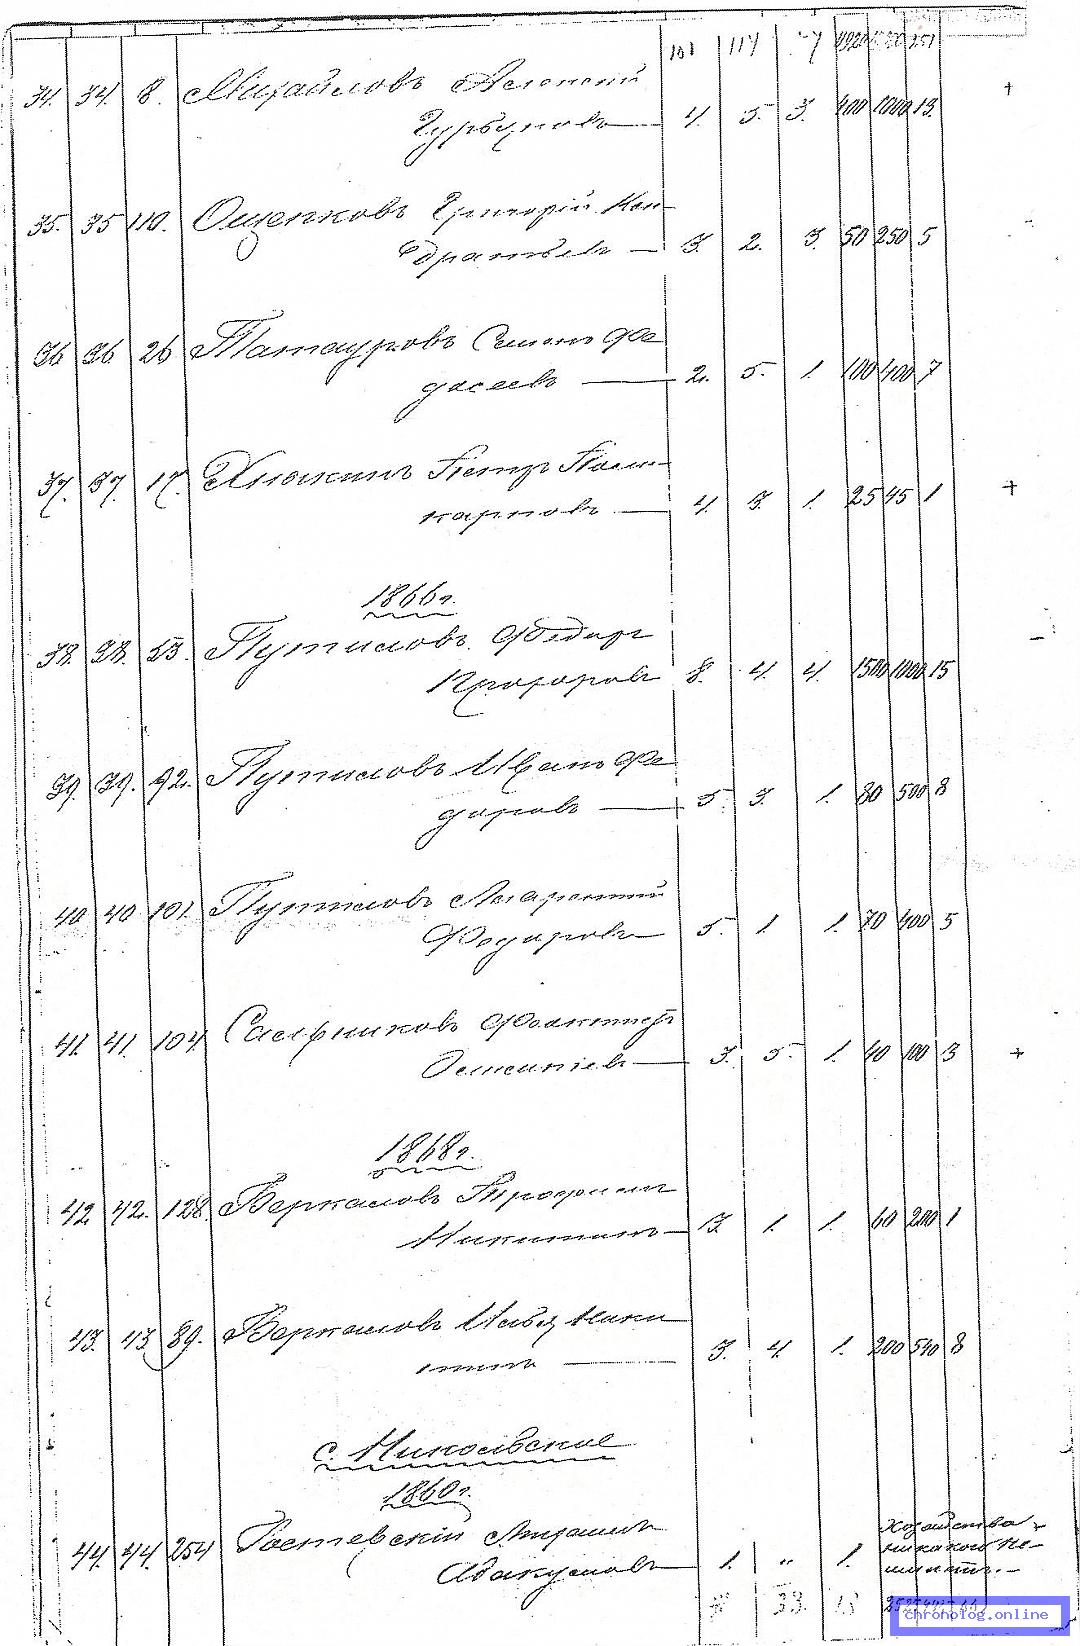 101 114
34. 34. 8. Михайловъ
4. 5. 3. 400 1000 13.
35. 35 110. Ощепковъ Григорій Кон-
дратьевъ — 3. 2. 3. 50 250 5
36 36. 26 Татауровъ Семенъ Фе
досеевъ — 2. 5. 1. 100 400 7
37. 37. 17. Хнюкинъ Петръ Поли-
карповъ — 4. 3. 1. 25 45 1 +
1866 г.
38. 38. 53. Путиловъ Федоръ
Прохоровъ 8. 4. 4. 1500 1000 15
39. 39. 92. Путиловъ Иванъ Фе
доровъ — 5. 3. 1. 80 500 8
40 40 101. Путиловъ Лаврентий
Федоровъ — 5. 1. 1. 70 400 5
41. 41. 104.
3. 5. 1. 40 100 3 +
1868 г.
42 42. 128. Беркаловъ Трофимъ
Никитинъ — 3. 1. 1. 60 200 1
43. 43 89. Беркаловъ Ники
тинъ — 3. 4. 1. 200 540 8
с. Никольское
1860 г.
44. 44. 254 Ростевскій
Абакумовъ — 1. " 1. Хозяйства
никакого не
имѣетъ. —
33. 18
chronolog.online